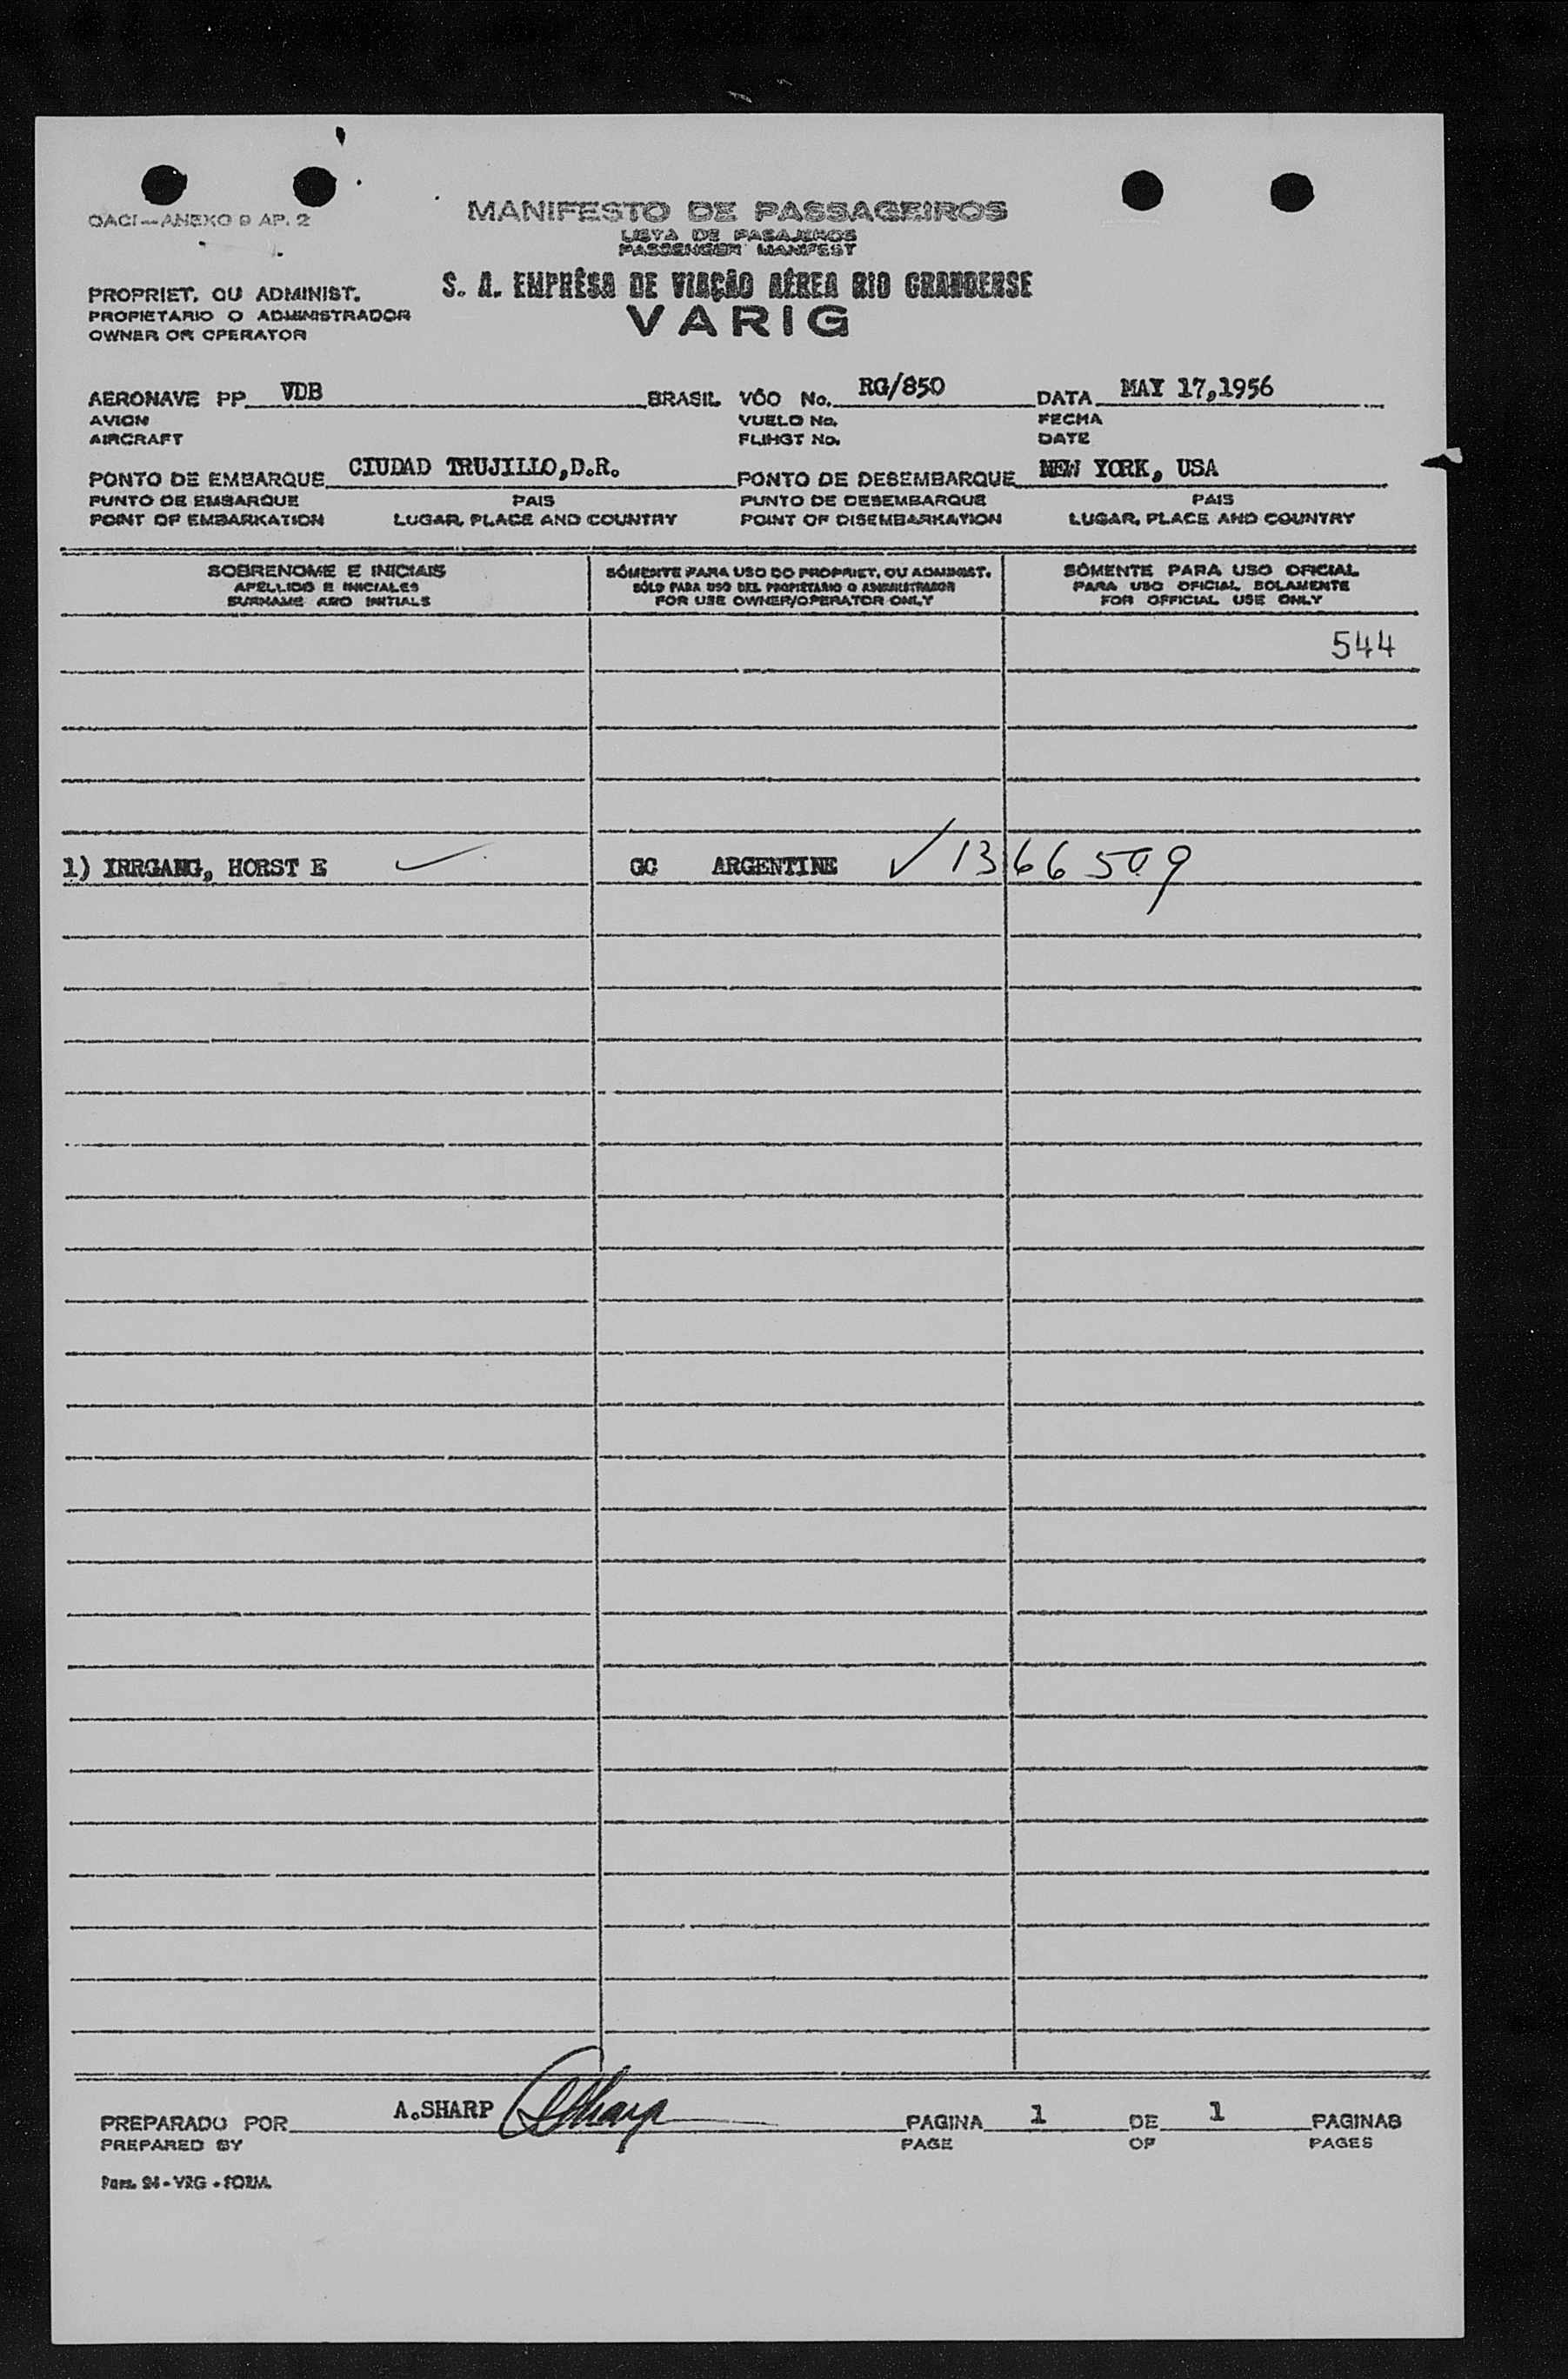 OACI—ANEXO 9 AP. 2
MANIFESTO DE PASSAGEIROS
LISTA DE PASAJEROS
PASSENGER MANIFEST
S. A. EMPRÊSA DE VIAÇÃO AÉREA RIO GRANDENSE
VARIG
PROPRIET. OU ADMINIST.
PROPIETARIO O ADMINISTRADOR
OWNER OR OPERATOR
AERONAVE PP VDB BRASIL VÔO No. RG/850 DATA MAY 17,1956
AVION VUELO No. FECHA
AIRCRAFT FLIHGT No. DATE
PONTO DE EMBARQUE CIUDAD TRUJILLO,D.R. PONTO DE DESEMBARQUE NEW YORK, USA
PUNTO DE EMBARQUE PAIS PUNTO DE DESEMBARQUE PAIS
POINT OF EMBARKATION LUGAR, PLACE AND COUNTRY POINT OF DISEMBARKATION LUGAR, PLACE AND COUNTRY
SOBRENOME E INICIAIS SÓMENTE PARA USO DO PROPRIET. OU ADMINIST. SÓMENTE PARA USO OFICIAL
APELLIDO E INICIALES SÓLO PARA USO DEL PROPIETARIO O ADMINISTRADOR PARA USO OFICIAL SOLAMENTE
SURNAME AND INITIALS FOR USE OWNER/OPERATOR ONLY FOR OFFICIAL USE ONLY
544
1) IRRGANG, HORST E ✓ GC ARGENTINE ✓ 1366509
PREPARADO POR A.SHARP ASharp PAGINA 1 DE 1 PAGINAS
PREPARED BY PAGE OF PAGES
24 - VRG - FORM.